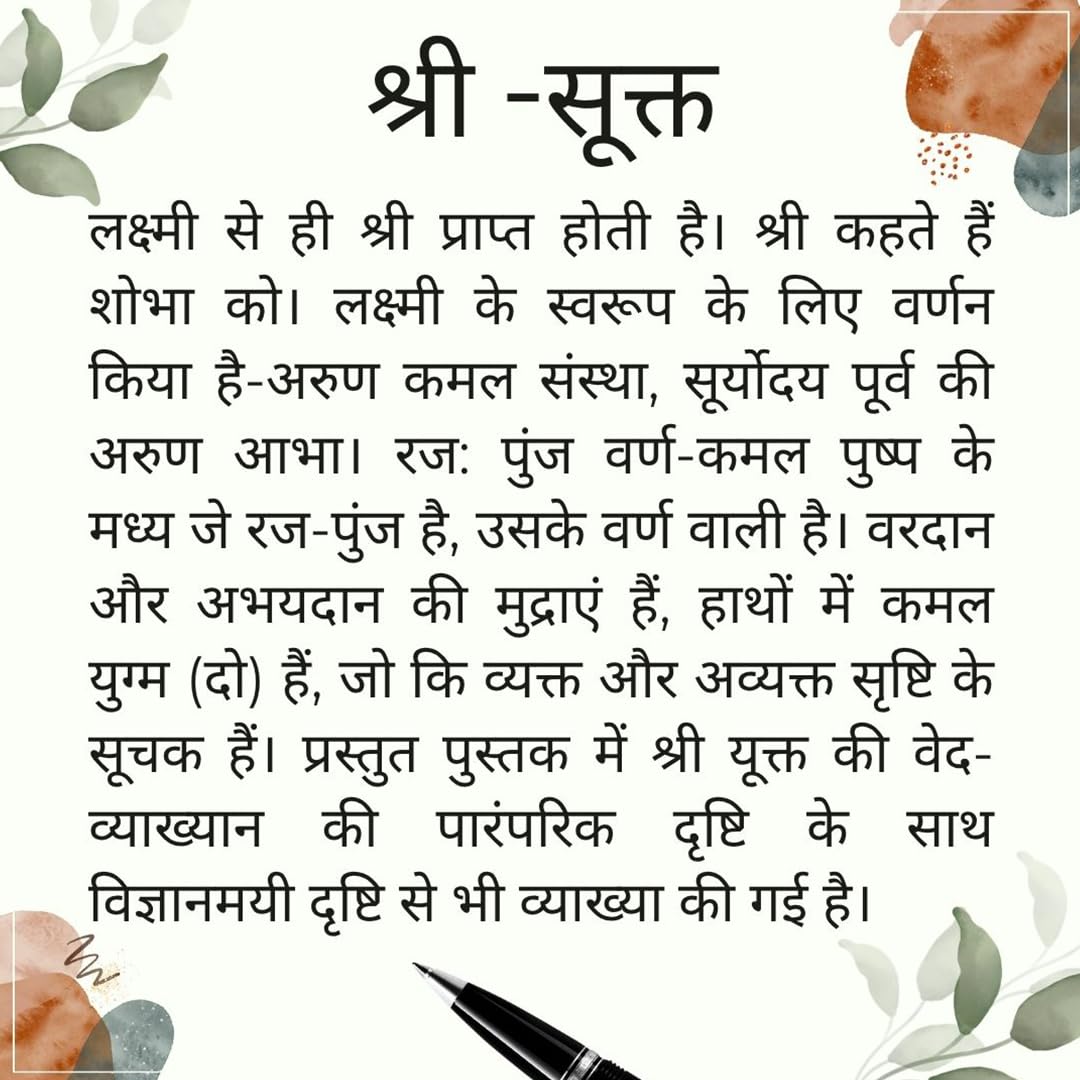 श्री -सूक्त
लक्ष्मी से ही श्री प्राप्त होती है। श्री कहते हैं
शोभा को। लक्ष्मी के स्वरूप के लिए वर्णन
किया है-अरुण कमल संस्था, सूर्योदय पूर्व की
अरुण आभा। रज: पुंज वर्ण-कमल पुष्प के
मध्य जे रज-पुंज है, उसके वर्ण वाली है। वरदान
और अभयदान की मुद्राएं हैं, हाथों में कमल
युग्म (दो) हैं, जो कि व्यक्त और अव्यक्त सृष्टि के
सूचक हैं। प्रस्तुत पुस्तक में श्री यूक्त की वेद-
व्याख्यान की पारंपरिक दृष्टि के साथ
विज्ञानमयी दृष्टि से भी व्याख्या की गई है।